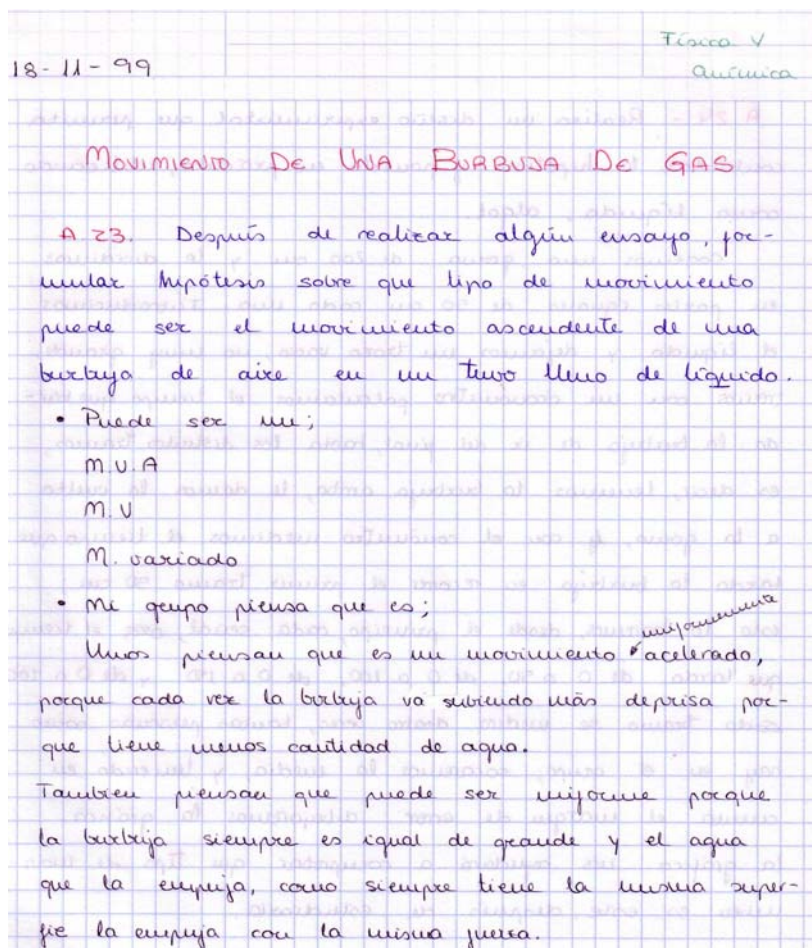 Física y
18-11-99
Química
MOVIMIENTO DE UNA BURBUJA DE GAS
A 23. Después de realizar algún ensayo, for-
mular hipótesis sobre que tipo de movimiento
puede ser el movimiento ascendente de una
burbuja de aire en un tuvo lleno de líquido.
• Puede ser un;
M.U.A
M.U
M. variado
• Mi grupo piensa que es;
uniformemente
Unos piensan que es un movimiento acelerado,
porque cada vez la burbuja vá subiendo más deprisa por-
que tiene menos cantidad de agua.
Tambien piensan que puede ser uniforme porque
la burbuja siempre es igual de grande y el agua
que la empuja, como siempre tiene la misma super-
fie la empuja con la misma fuerza.